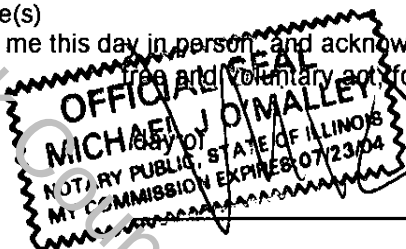 e(s)
me this day in person, and acknow
free and voluntary act, fo
day of
OFFICIAL SEAL
MICHAEL J O'MALLEY
NOTARY PUBLIC, STATE OF ILLINOIS
MY COMMISSION EXPIRES:07/23/04